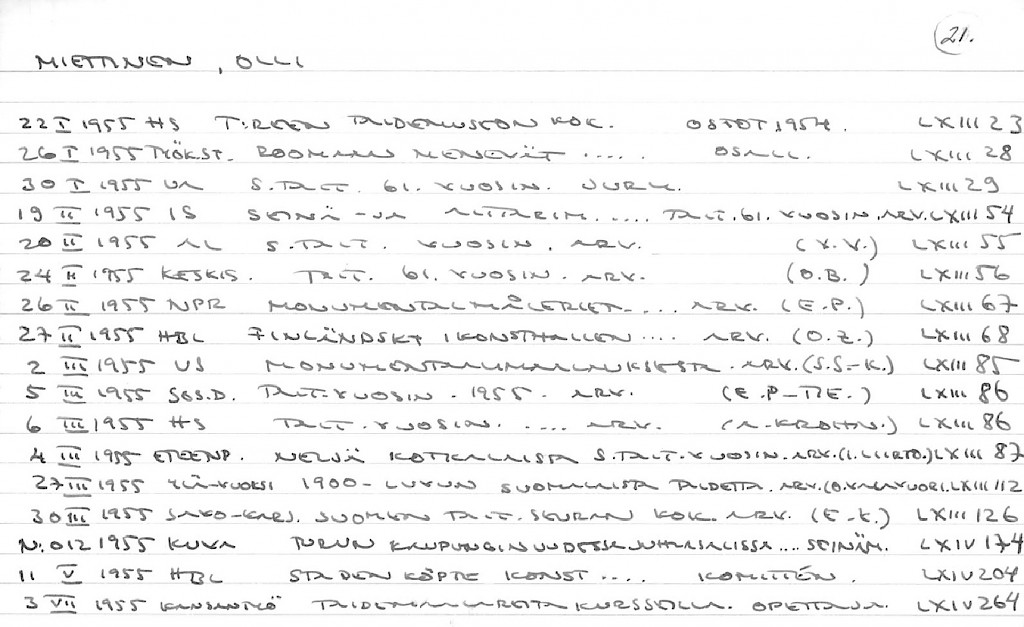 21.
MIETTINEN, OLLI
22 I 1955 HS T:REEN TAIDEMUSEON KOK. OSTOT 1954. LXIII 23
26 I 1955 TYÖK.ST. ROOMAAN MENEVÄT ..... OSALL. LXIII 28
30 I 1955 UA S.TAIT. 61. VUOSIN. JURY. LXIII 29
19 II 1955 IS SEINÄ-JA ALTTARIM. .... TAIT. 61. VUOSIN. ARV. LXIII 54
20 II 1955 AL S.TAIT. VUOSIN. ARV. (V.V.) LXIII 55
24 II 1955 KESKIS. TAIT. 61. VUOSIN. ARV. (O.B.) LXIII 56
26 II 1955 NPR MONUMENTALMÅLERIET.... ARV. (E.P.) LXIII 67
27 II 1955 HBL FINLÄNDSKT I KONSTHALLEN .... ARV. (O.Z.) LXIII 68
2 III 1955 US MONUMENTAALIMAALAUKSESTA ARV. (S.S-K.) LXIII 85
5 III 1955 SOS.D. TAIT.VUOSIN. 1955. ARV. (E.P-) LXIII 86
6 III 1955 HS TAIT.VUOSIN. .... ARV. (A-KROHN.) LXIII 86
4 III 1955 ETEENP. NELJÄ KOTKALAISTA S.TAIT.VUOSIN. ARV. (I. LIIRTO.) LXIII 87
27 III 1955 YLÄ-VUOKSI 1900-LUVUN SUOMALAISTA TAIDETTA. ARV. (O.VALAVUORI. LXIII 112
30 III 1955 SAVO-KARJ. SUOMEN TAIT.SEURAN KOK. ARV. (E-K.) LXIII 126
N:O 12 1955 KUVA TURUN KAUPUNGIN UUDESSA JUHLASALISSA .... SEINÄM. LXIV 174
11 V 1955 HBL STADEN KÖPTE KONST .... KOMITTÉN. LXIV 204
3 VII 1955 KANSANTYÖ TAIDEMAALAREITA KURSSEILLA. OPETTAJA. LXIV 264